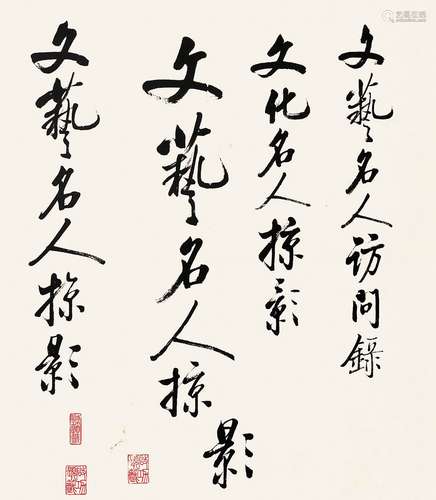 文藝名人訪問錄
文化名人掠影
文藝名人掠影
文藝名人掠影